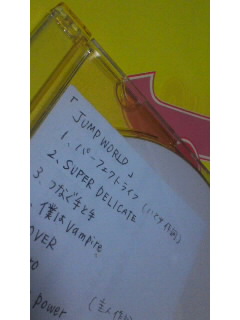 「JUMP WORLD」
1、パーフェクトライフ
2、SUPER DELICATE
3、つなぐ手と手
、僕はVampire
OVER
power